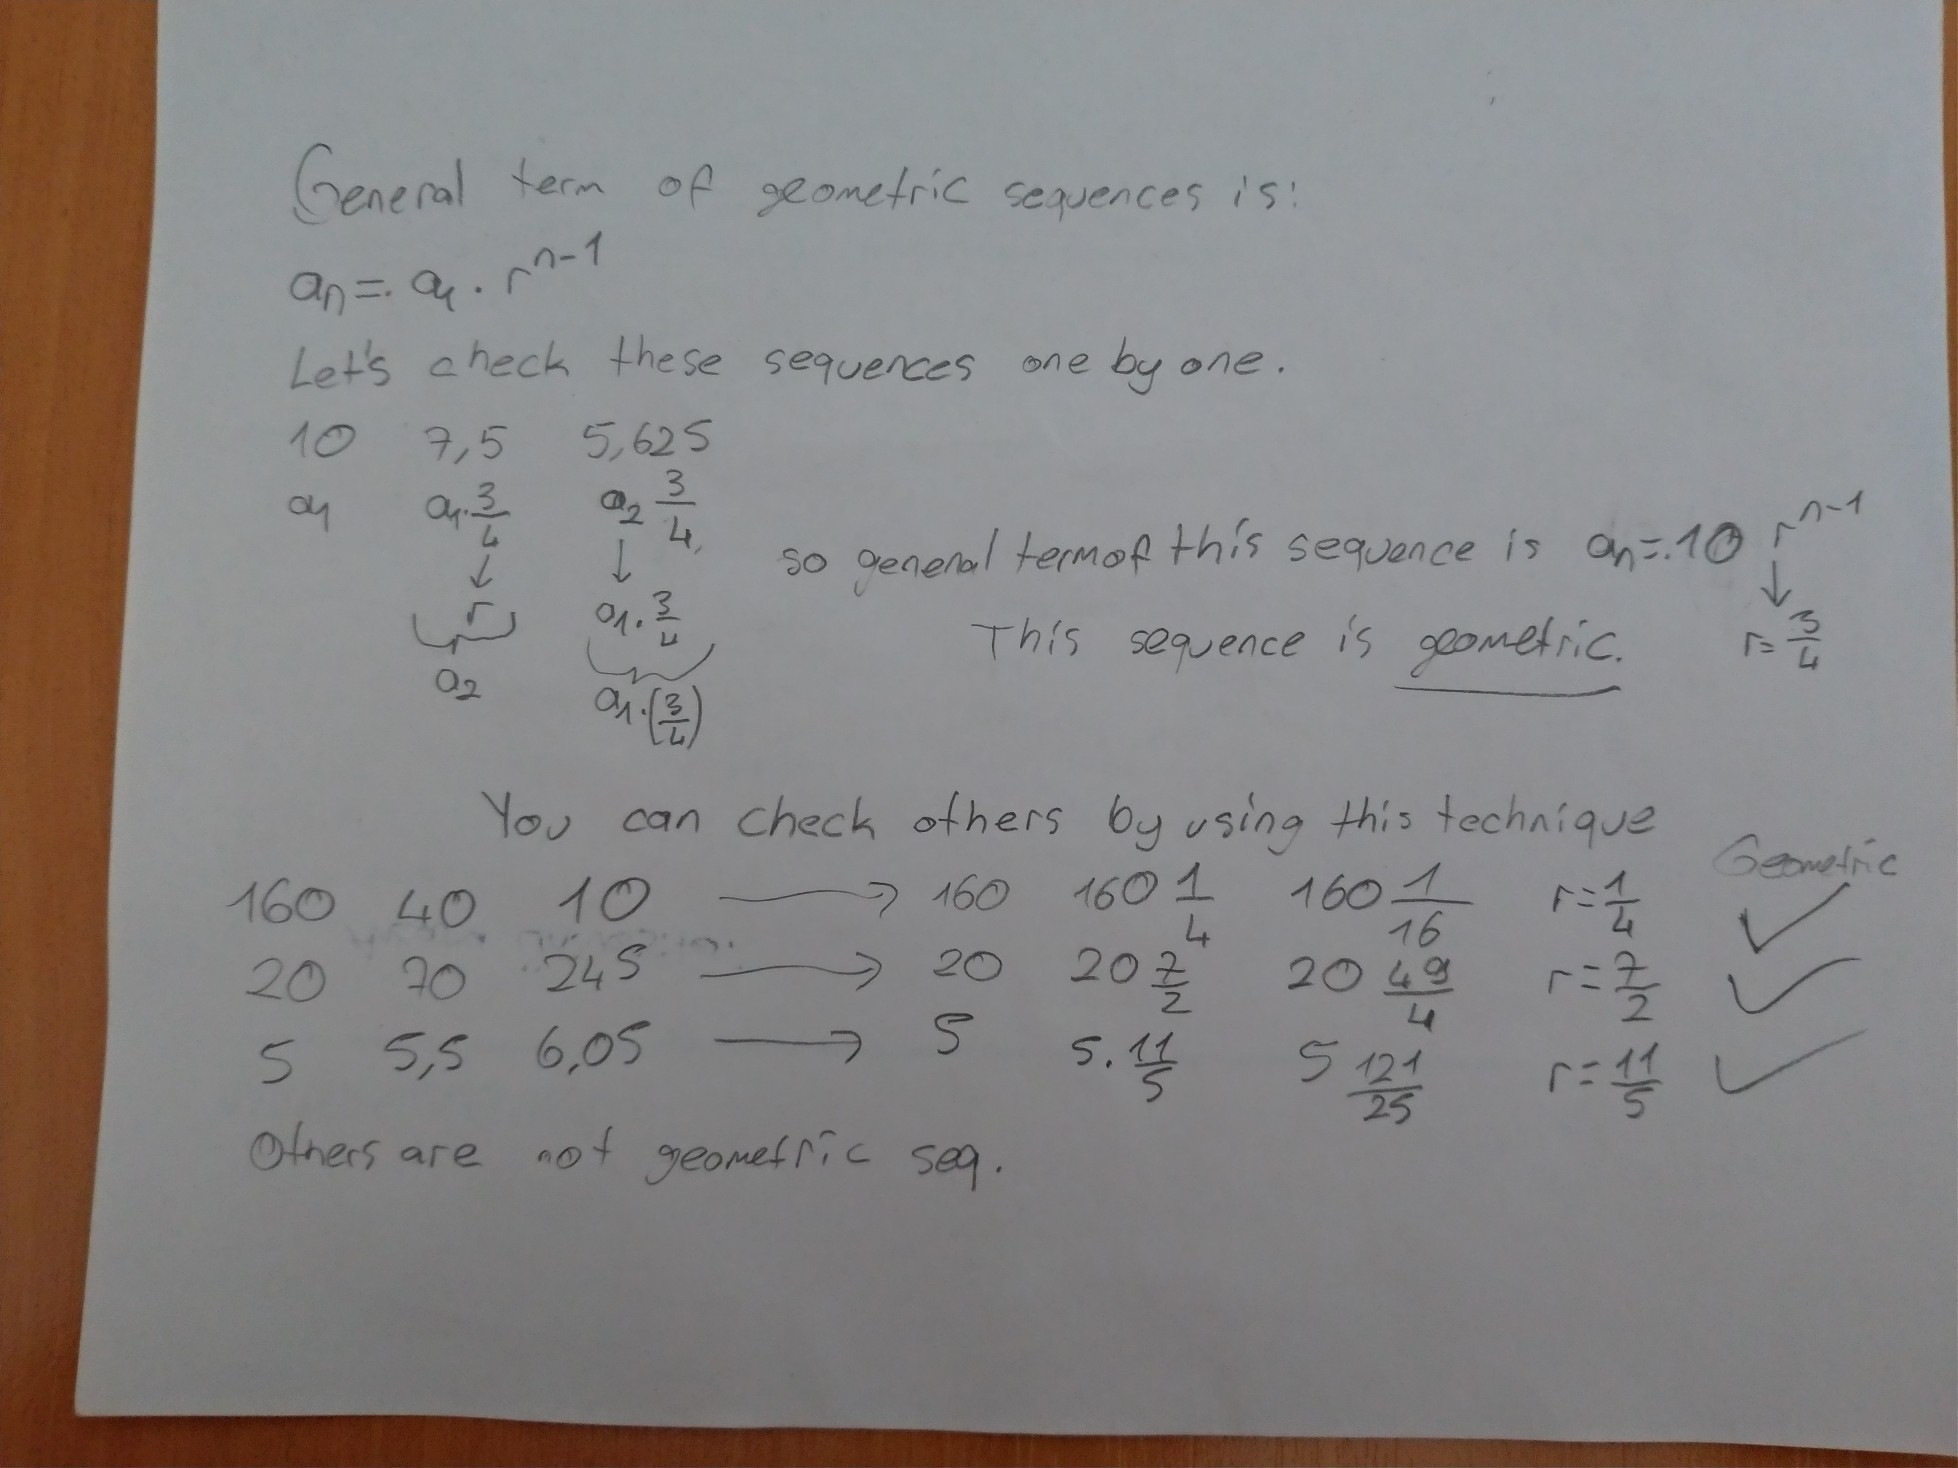 General term of geometric sequences is:
an = a1 . r^n-1
Let's check these sequences one by one.
10 7,5 5,625
a1 a1. 3/4 a2 3/4
↓ ↓
r a1. 3/4
a2 a1.(3/4)
so general term of this sequence is an = 10 r^n-1
↓
This sequence is geometric. r= 3/4
You can check others by using this technique
Geometric
160 40 10 → 160 160 1/4 160 1/16 r= 1/4 ✓
20 70 245 → 20 20 7/2 20 49/4 r= 7/2 ✓
5 5,5 6,05 → 5 5. 11/5 5 121/25 r= 11/5 ✓
Others are not geometric seq.